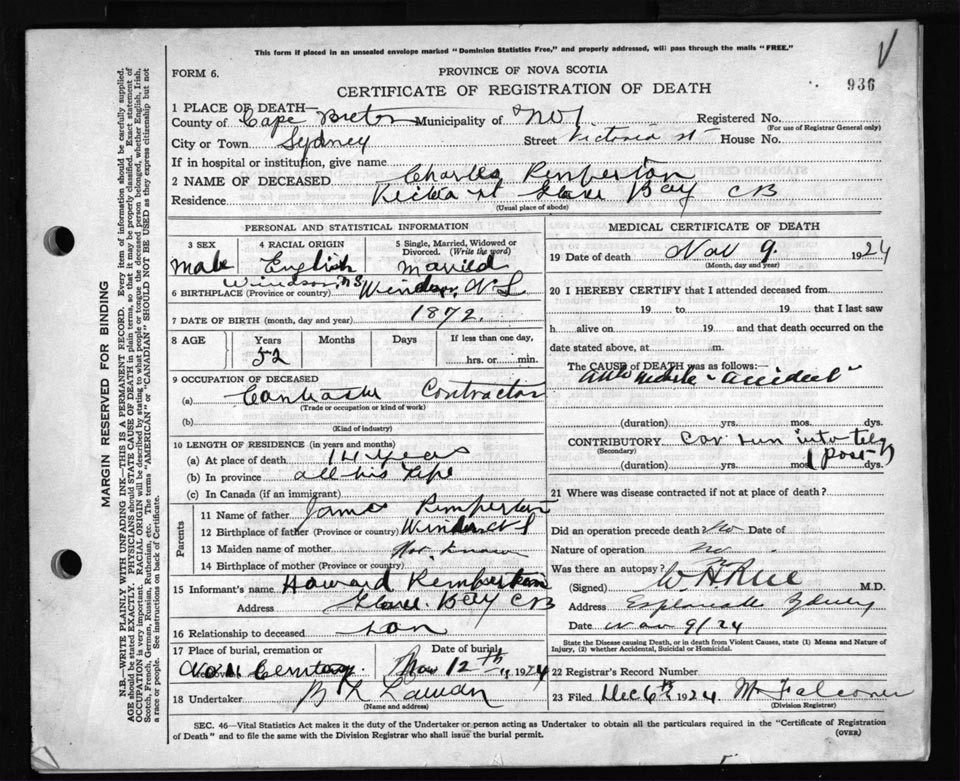 This form if placed in an unsealed envelope marked "Dominion Statistics Free," and properly addressed, will pass through the mails "FREE."
FORM 6.
PROVINCE OF NOVA SCOTIA
936
CERTIFICATE OF REGISTRATION OF DEATH
1 PLACE OF DEATH—
County of Cape Breton Municipality of No 1 Registered No.
(For use of Registrar General only)
City or Town Sydney Street Victoria St House No.
If in hospital or institution, give name
2 NAME OF DECEASED Charles
Residence St Glace Bay CB
(Usual place of abode)
PERSONAL AND STATISTICAL INFORMATION
3 SEX 4 RACIAL ORIGIN 5 Single, Married, Widowed or Divorced. (Write the word)
Male English Married
Windsor, NS
6 BIRTHPLACE (Province or country) Windsor, N S
7 DATE OF BIRTH (month, day and year) 1872.
8 AGE Years Months Days If less than one day,
52 hrs. or min.
9 OCCUPATION OF DECEASED
(a) Contractor
(Trade or occupation or kind of work)
(b)
(Kind of industry)
10 LENGTH OF RESIDENCE (in years and months)
(a) At place of death 14 years
(b) In province all his life
(c) In Canada (if an immigrant)
Parents
11 Name of father James
12 Birthplace of father (Province or country) Windsor N S
13 Maiden name of mother Not known
14 Birthplace of mother (Province or country)
15 Informant's name Howard
Address Glace Bay CB
16 Relationship to deceased son
17 Place of burial, cremation or removal Date of burial
Cemetery Nov 12th 1924
18 Undertaker
(Name and address)
MEDICAL CERTIFICATE OF DEATH
19 Date of death Nov 9. 1924
(Month, day and year)
20 I HEREBY CERTIFY that I attended deceased from
19 to 19 that I last saw
h alive on 19 and that death occurred on the
date stated above, at m.
The CAUSE OF DEATH was as follows:—
Automobile accident
(duration) yrs. mos. dys.
CONTRIBUTORY Car run into tely
(Secondary) post
(duration) yrs. mos. dys.
21 Where was disease contracted if not at place of death?
Did an operation precede death? No Date of
Nature of operation
Was there an autopsy? no
(Signed) M.D.
Address Esplanade Sydney
Date Nov 9/24
State the Disease causing Death, or in Death from Violent Causes, state (1) Means and Nature of Injury, (2) whether Accidental, Suicidal or Homicidal.
22 Registrar's Record Number
23 Filed Dec 6th 1924 Falconer
(Division Registrar)
SEC. 46—Vital Statistics Act makes it the duty of the Undertaker or person acting as Undertaker to obtain all the particulars required in the "Certificate of Registration
of Death" and to file the same with the Division Registrar who shall issue the burial permit.
(OVER)
MARGIN RESERVED FOR BINDING
N.B.—WRITE PLAINLY WITH UNFADING INK—THIS IS A PERMANENT RECORD. Every item of information should be carefully supplied.
AGE should be stated EXACTLY. PHYSICIANS should STATE CAUSE OF DEATH in plain terms, so that it may be properly classified. Exact statement of
OCCUPATION is very important. RACIAL ORIGIN will be described by stating to what people or tongue the deceased person belonged, whether English, Irish,
Scotch, French, German, Russian, Ruthenian, etc. The terms "AMERICAN" or "CANADIAN" SHOULD NOT BE USED as they express citizenship but not
a race or people. See instructions on back of Certificate.